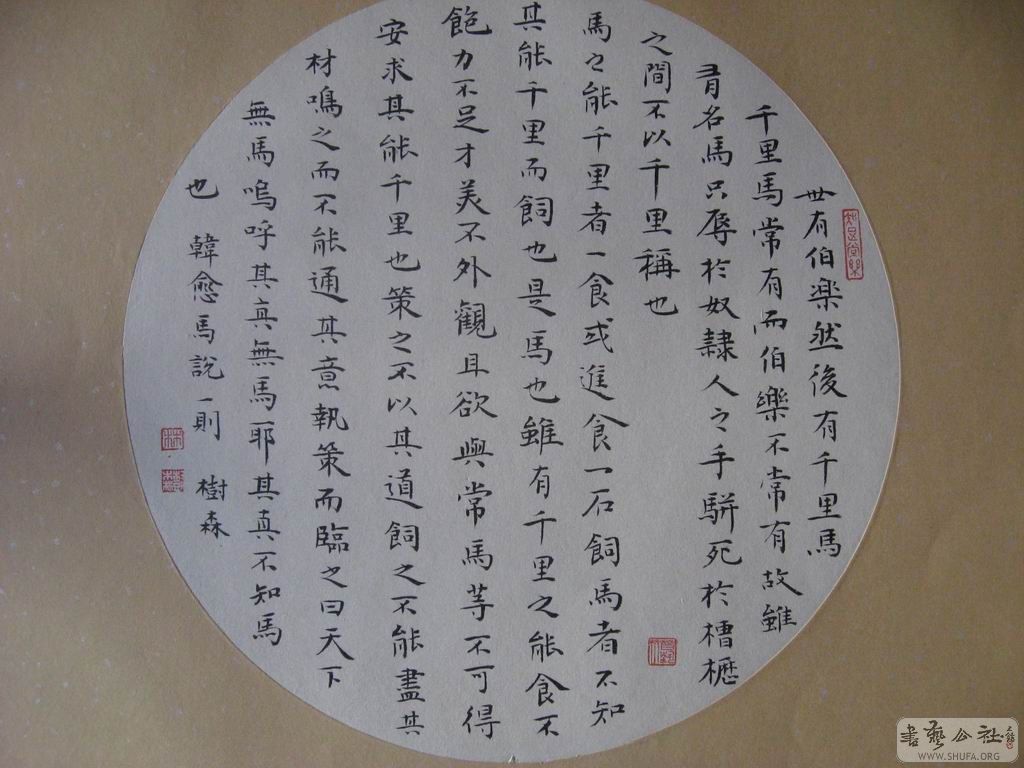 世有伯楽然後有千里馬
千里馬常有而伯樂不常有故雖
有名馬只辱於奴隸人之手駢死於槽櫪
之間不以千里稱也
馬之能千里者一食或進食一石飼馬者不知
其能千里而飼也是馬也雖有千里之能食不
飽力不足才美不外觀且欲與常馬等不可得
安求其能千里也策之不以其道飼之不能盡其
材鳴之而不能通其意執策而臨之曰天下
無馬嗚呼其真無馬耶其真不知馬
也 韓愈馬說一則 樹森
書藝公社
WWW.SHUFA.ORG